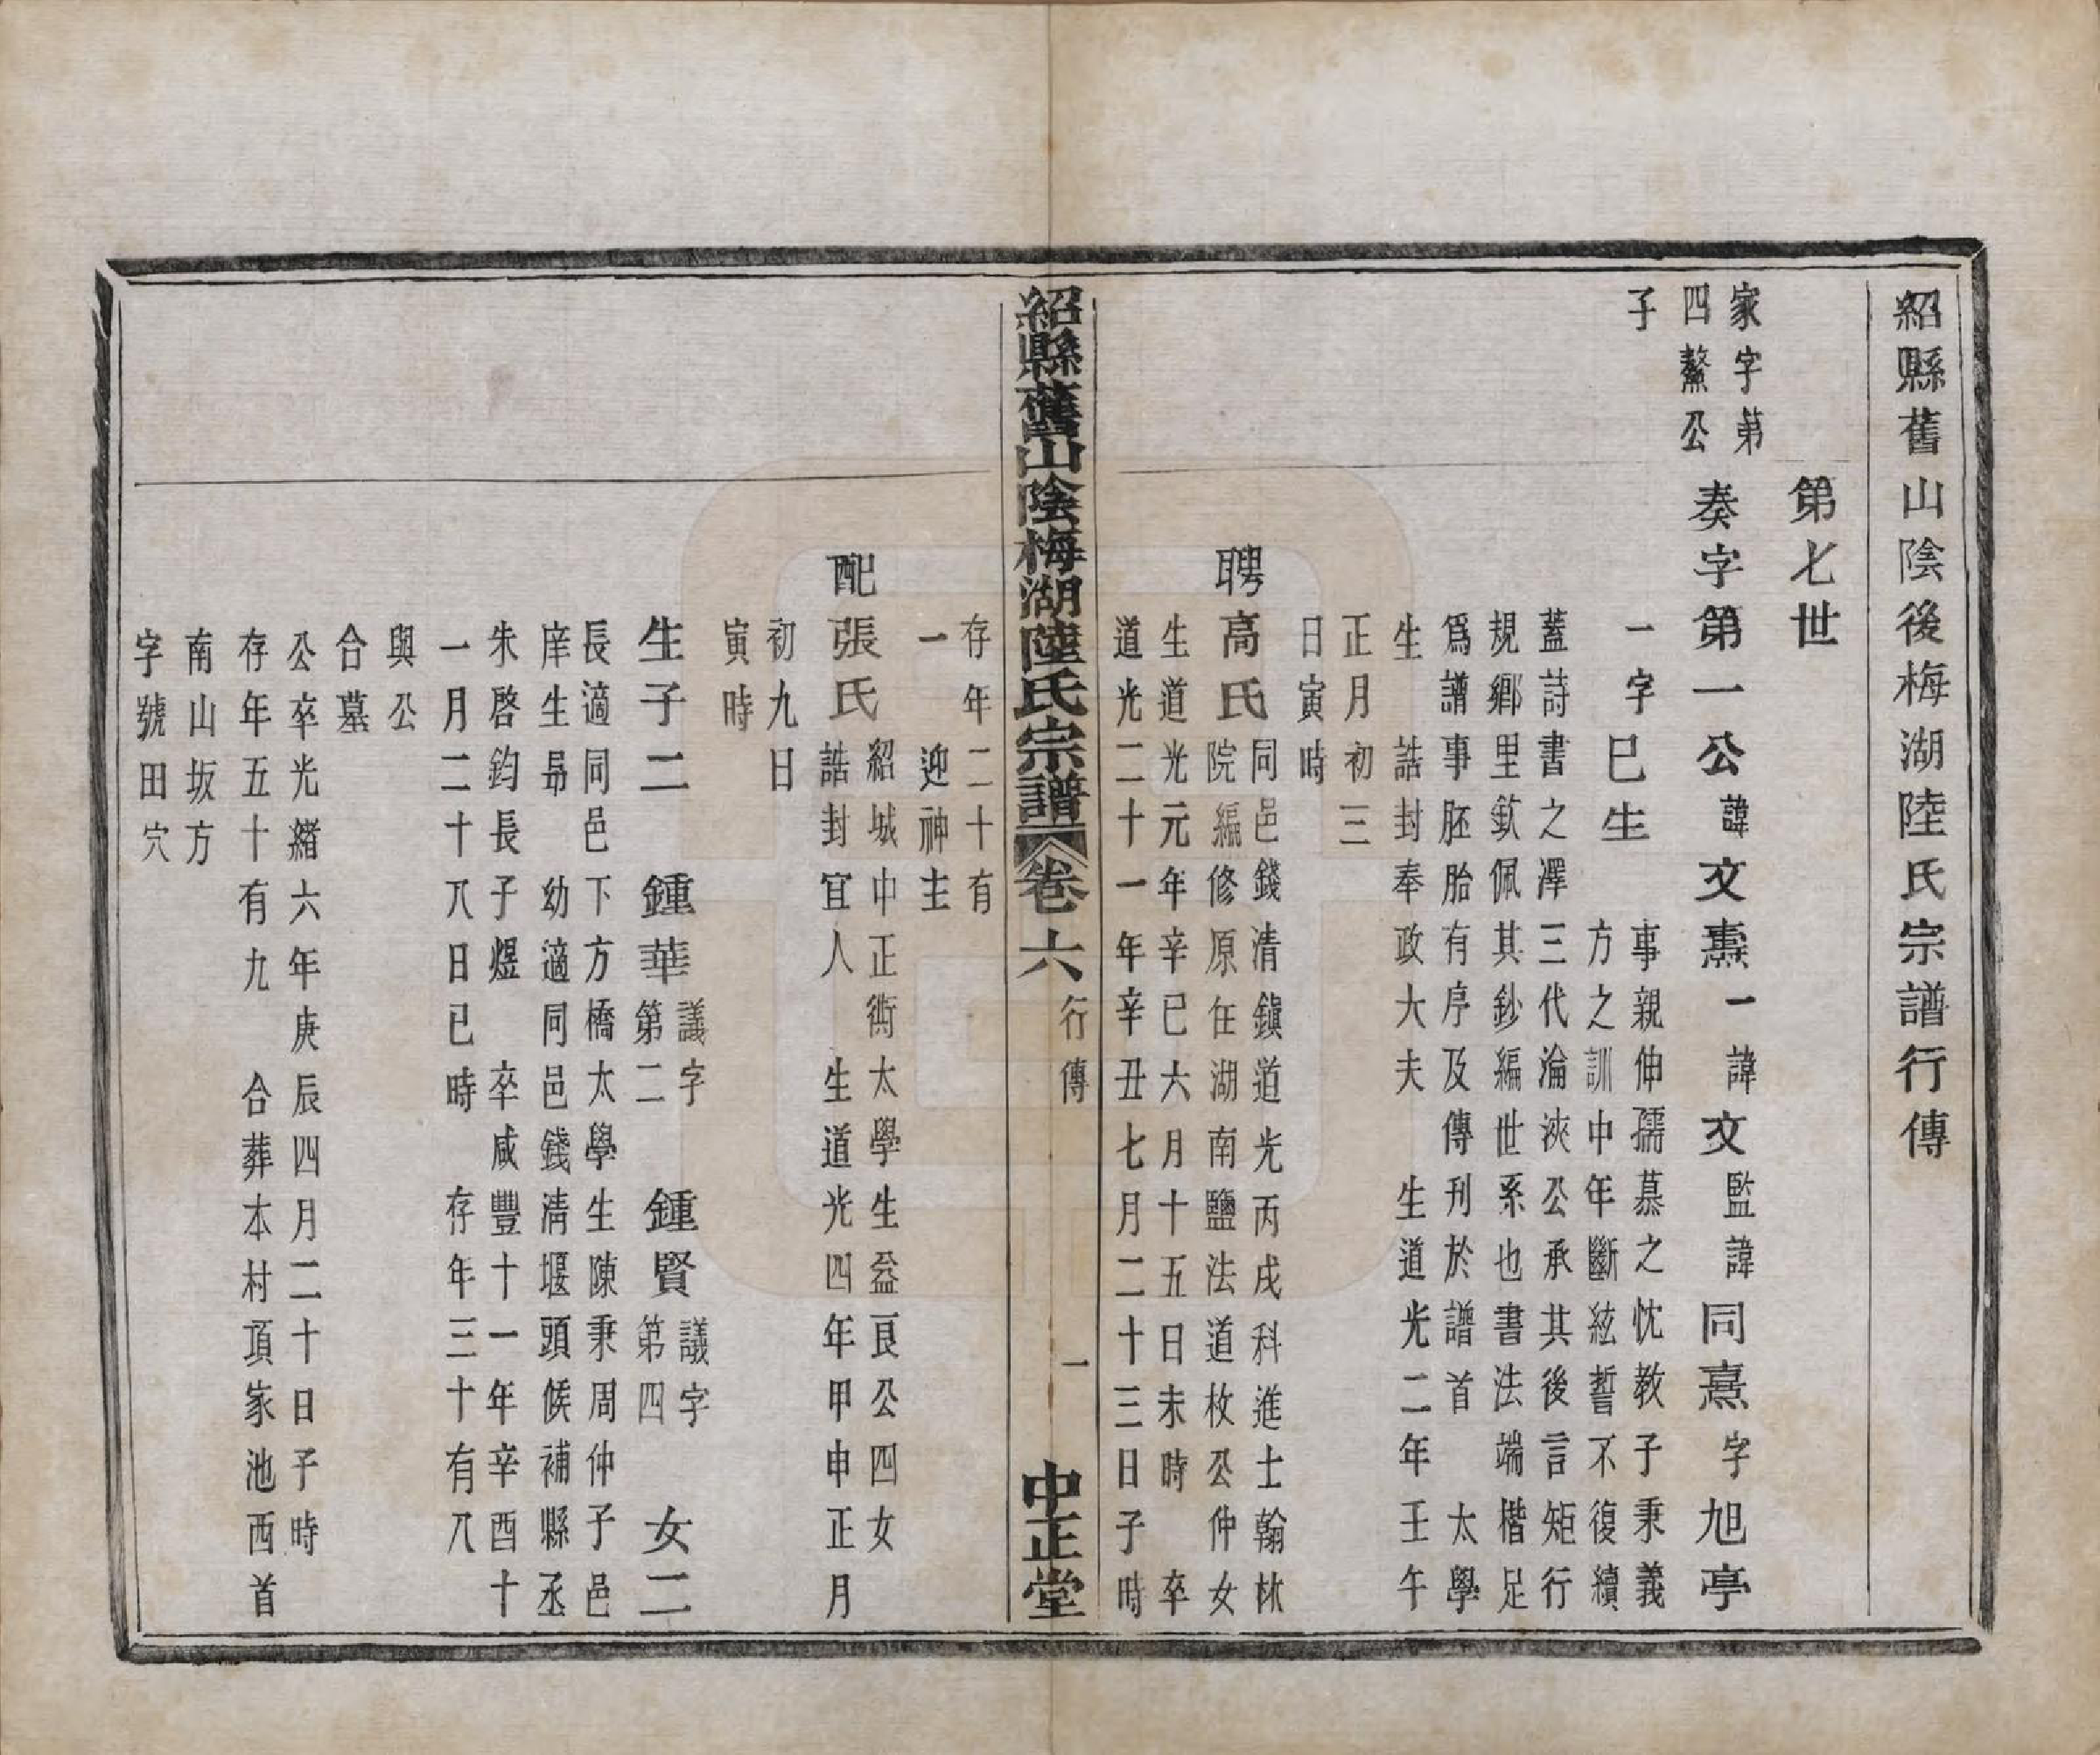 紹縣舊山陰後梅湖陸氏宗譜行傳
第七世
家字第
四鰲公
子
奏字第一公諱文燾一諱文監諱同熹字旭亭
一字巳生
事親伸孺慕之忱教子秉義
方之訓中年斷絃誓不復續
蓋詩書之澤三代淪浹公承其後言矩行
規鄉里欽佩其鈔編世系也書法端楷足
爲譜事胚胎有序及傳刊於譜首 太學
生 誥封奉政大夫 生道光二年壬午
正月初三
日寅時
聘高氏同邑錢清鎭道光丙戌科進士翰林
院編修原任湖南鹽法道枚公仲女
生道光元年辛巳六月十五日未時 卒
道光二十一年辛丑七月二十三日子時
紹縣舊山陰梅湖陸氏宗譜 卷六 行傳 一 中正堂
存年二十有
一 迎神主
配張氏紹城中正衖太學生益良公四女
誥封宜人 生道光四年甲申正月
初九日
寅時
生子二 鍾華議字第二 鍾賢議字第四 女二
長適同邑下方橋太學生陳秉周仲子邑
庠生昻 幼適同邑錢清堰頭候補縣丞
朱啓鈞長子煜 卒咸豐十一年辛酉十
一月二十八日巳時 存年三十有八
與公
合墓
公卒光緒六年庚辰四月二十日子時
存年五十有九 合葬本村項家池西首
南山坂方
字號田穴